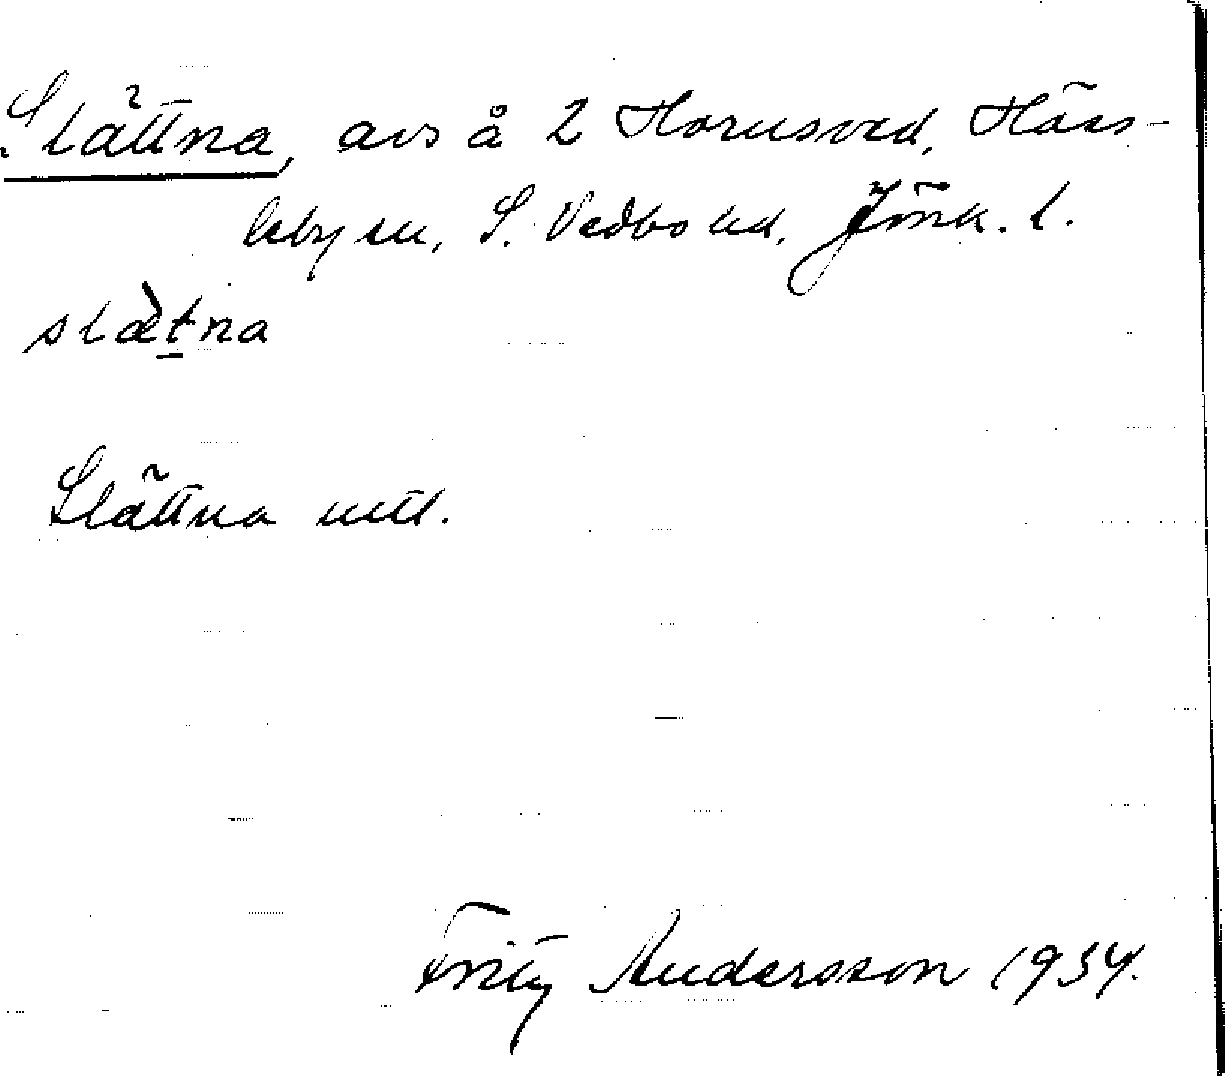 Slättna, avs å 2 Hornsved, Häss-
leby sn, S. Vedbo hd, Jönk. l.
slæ̀tna
Slättna mtl.
Fritz Andersson 1934.